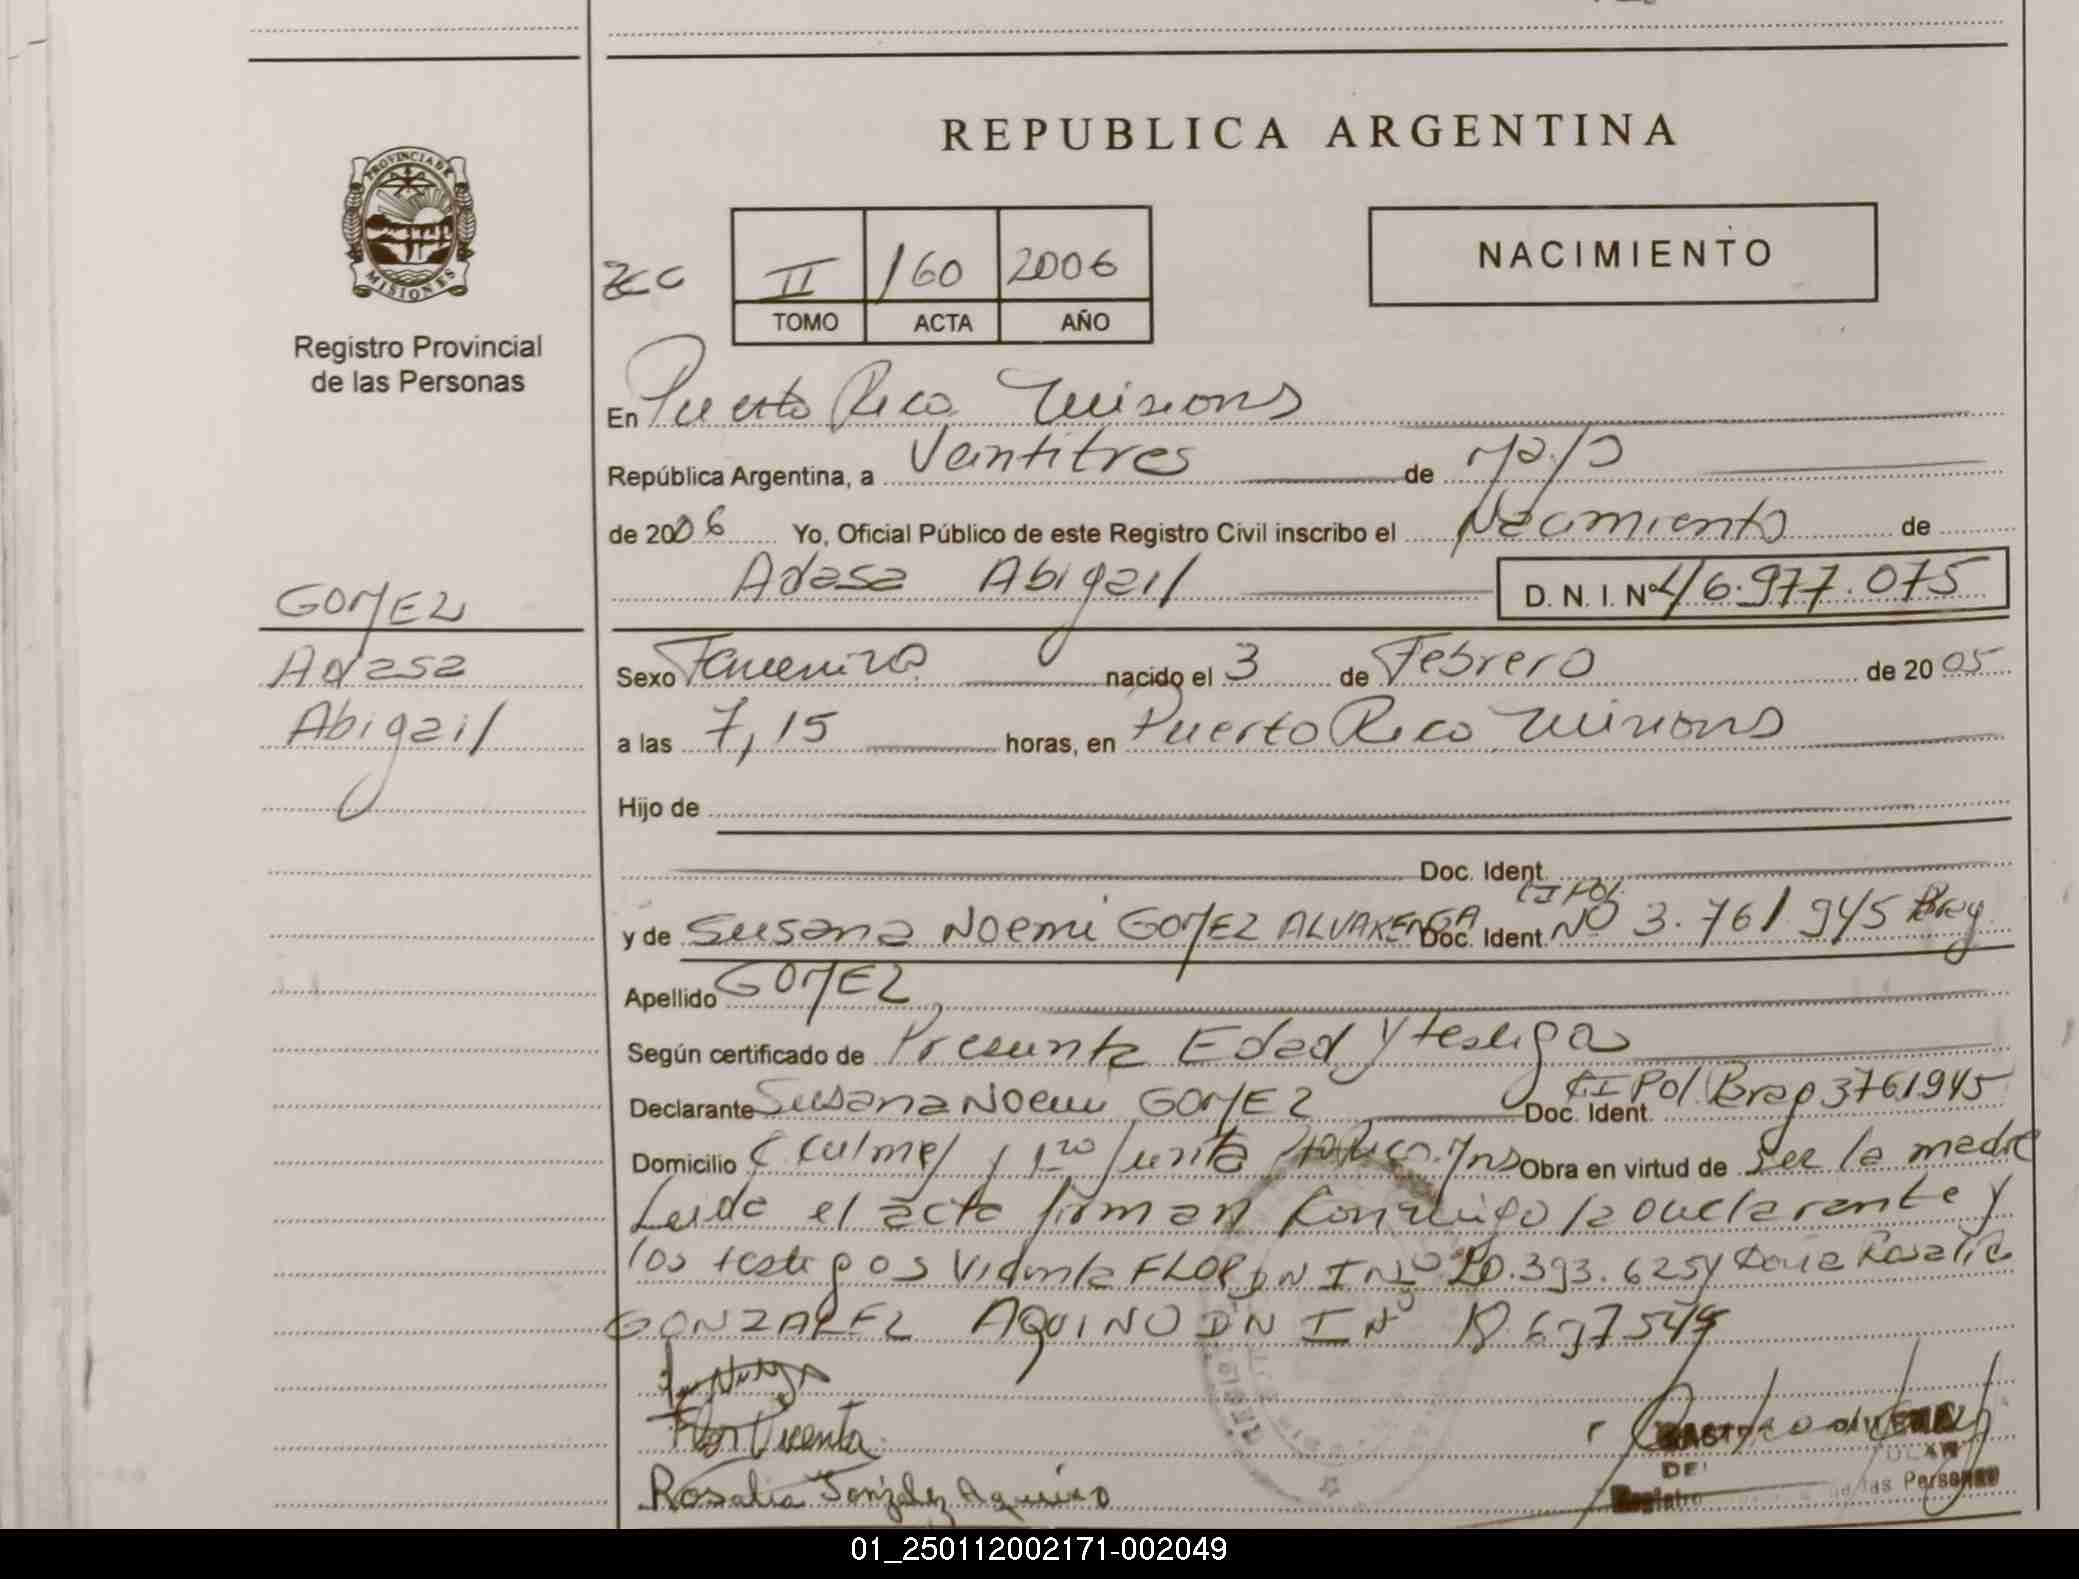 REPUBLICA ARGENTINA
PROVINCIA DE
MISIONES
Registro Provincial
de las Personas
II 160 2006
TOMO ACTA AÑO
NACIMIENTO
En Puerto Rico Misiones
República Argentina, a Veintitres de Mayo
de 2006 Yo, Oficial Público de este Registro Civil inscribo el Nacimiento de
Adasa Abigail D. N. I. Nº 46.977.075
GOMEZ
Adasa
Abigail
Sexo Femenino nacido el 3 de Febrero de 2005
a las 7,15 horas, en Puerto Rico Misiones
Hijo de
Doc. Ident.
y de Susana Noemi GOMEZ ALVARENGA Doc. Ident. CI Pol Nº 3.761.945 Prag
Apellido GOMEZ
Según certificado de Presunta Edad y testigos
Declarante Susana Noemi GOMEZ Doc. Ident. CI Pol Prag 3761945
Domicilio C Culmey y 1ra Junta Pto Rico Mns Obra en virtud de ser la madre
Leida el acta firman conmigo la declarante y
los testigos Vicenta FLOR DNI Nº 20.393.625 y Rosalia
GONZALEZ AQUINO DNI Nº 18.677549
Flor Vicenta
Rosalia González Aquino
DE
Registro de las Personas
01_250112002171-002049